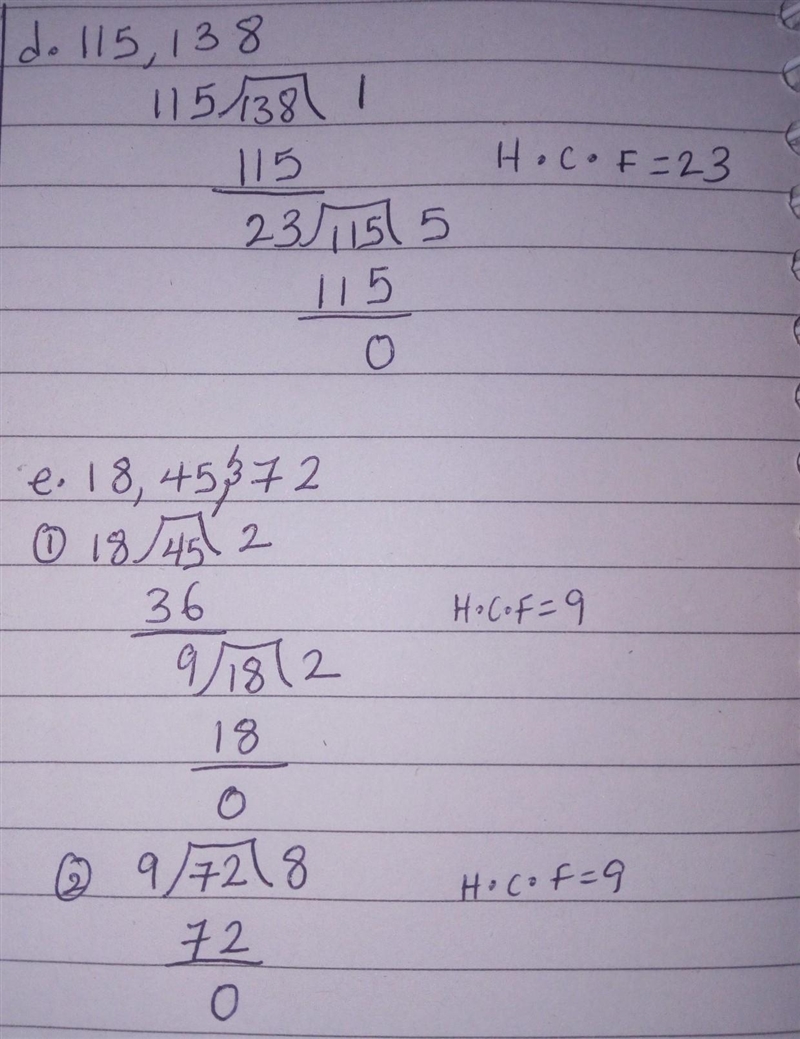 d. 115, 138
115 138 1
115
H.C.F = 23
23 115 5
115
0
e. 18, 45, 72
① 18 45 2
36
H.C.F = 9
9 18 2
18
0
② 9 72 8
H.C.F = 9
72
0